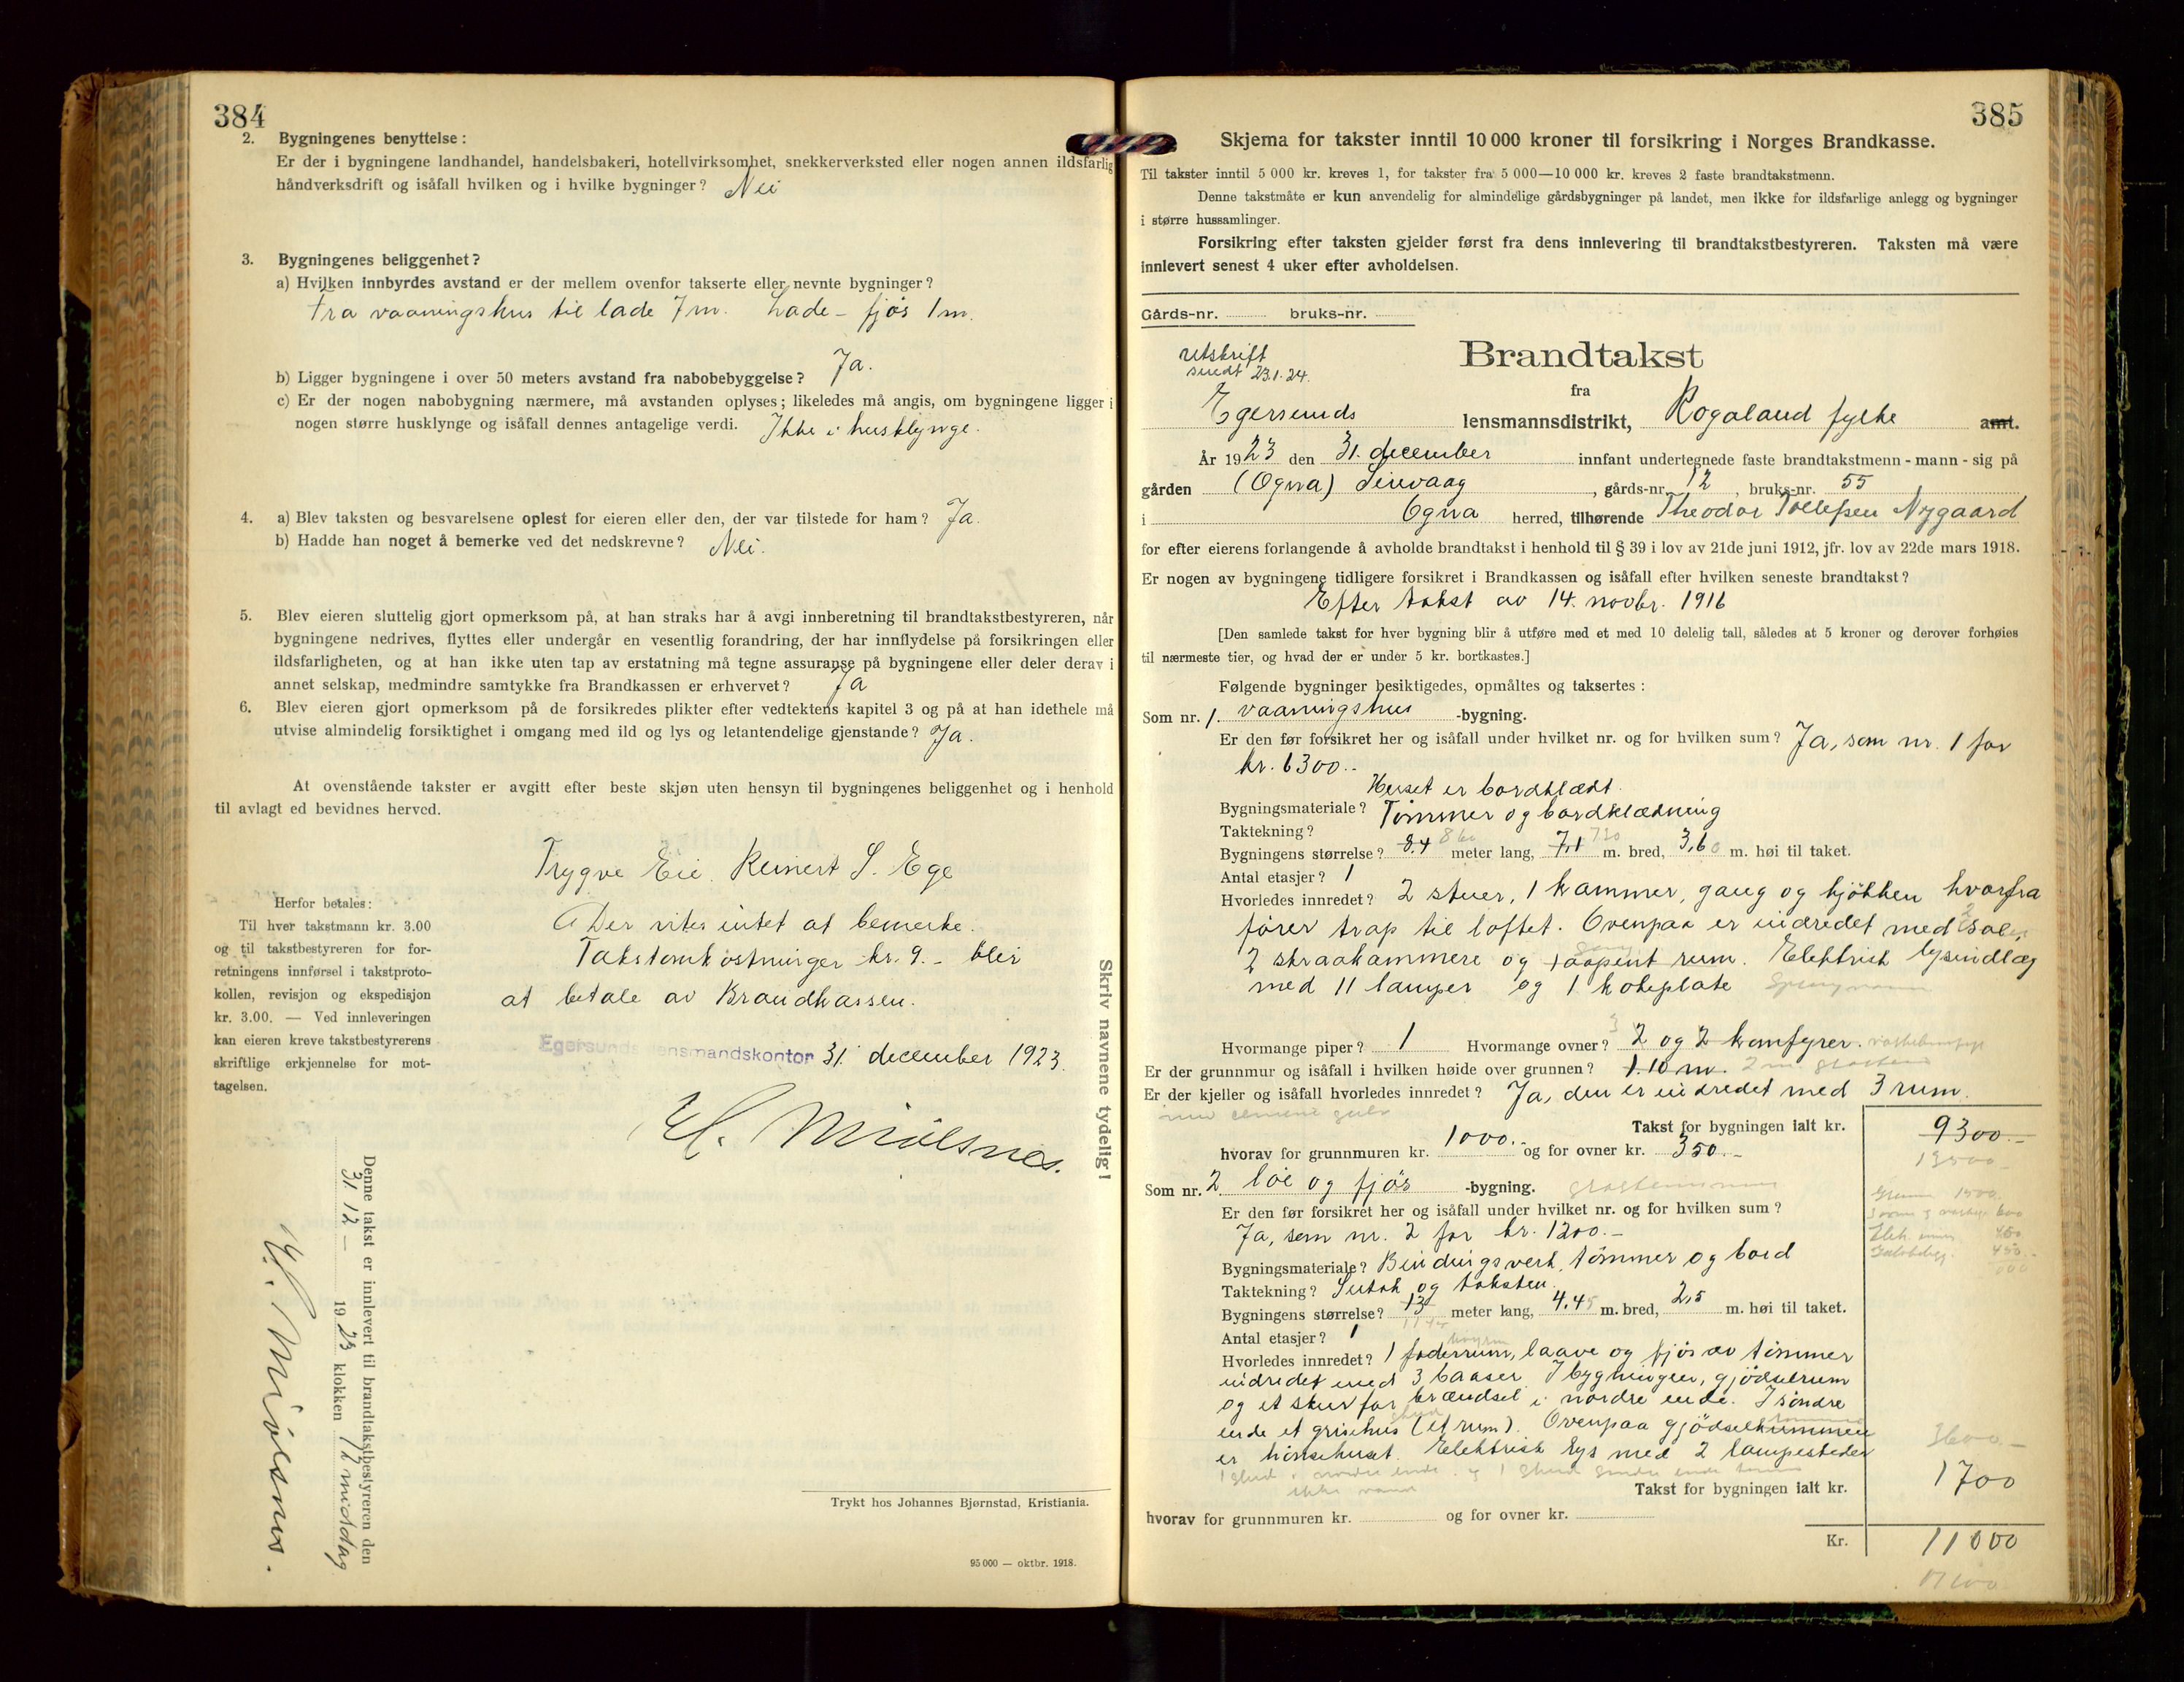 384
2. Bygningenes benyttelse:
Er der i bygningene landhandel, handelsbakeri, hotellvirksomhet, snekkerverksted eller nogen annen ildsfarlig
håndverksdrift og isåfall hvilken og i hvilke bygninger? Nei
3. Bygningenes beliggenhet?
a) Hvilken innbyrdes avstand er der mellem ovenfor takserte eller nevnte bygninger?
Fra vaaningshus til lade 7 m. Lade - fjös 1 m.
b) Ligger bygningene i over 50 meters avstand fra nabobebyggelse? Ja.
c) Er der nogen nabobygning nærmere, må avstanden oplyses; likeledes må angis, om bygningene ligger i
nogen større husklynge og isåfall dennes antagelige verdi. Ikke i husklynge.
4. a) Blev taksten og besvarelsene oplest for eieren eller den, der var tilstede for ham? Ja.
b) Hadde han noget å bemerke ved det nedskrevne? Nei.
5. Blev eieren sluttelig gjort opmerksom på, at han straks har å avgi innberetning til brandtakstbestyreren, når
bygningene nedrives, flyttes eller undergår en vesentlig forandring, der har innflydelse på forsikringen eller
ildsfarligheten, og at han ikke uten tap av erstatning må tegne assuranse på bygningene eller deler derav i
annet selskap, medmindre samtykke fra Brandkassen er erhvervet? Ja
6. Blev eieren gjort opmerksom på de forsikredes plikter efter vedtektens kapitel 3 og på at han idethele må
utvise almindelig forsiktighet i omgang med ild og lys og letantendelige gjenstande? Ja.
At ovenstående takster er avgitt efter beste skjøn uten hensyn til bygningenes beliggenhet og i henhold
til avlagt ed bevidnes herved.
Trygve Eie. Reinert S. Ege
Der vites intet at bemerke.
Takstomkostninger kr. 9.- blir
at betale av Brandkassen.
Egersunds lensmandskontor 31. december 1923.
M. Miölsnes.
Herfor betales:
Til hver takstmann kr. 3.00
og til takstbestyreren for for-
retningens innførsel i takstproto-
kollen, revisjon og ekspedisjon
kr. 3.00. — Ved innleveringen
kan eieren kreve takstbestyrerens
skriftlige erkjennelse for mot-
tagelsen.
Denne takst er innlevert til brandtakstbestyreren den
31. 12 - 1923 klokken 12 middag
M. Miölsnes.
Skriv navnene tydelig!
Trykt hos Johannes Bjørnstad, Kristiania.
95 000 — oktbr. 1918.
385
Skjema for takster inntil 10 000 kroner til forsikring i Norges Brandkasse.
Til takster inntil 5 000 kr. kreves 1, for takster fra 5 000—10 000 kr. kreves 2 faste brandtakstmenn.
Denne takstmåte er kun anvendelig for almindelige gårdsbygninger på landet, men ikke for ildsfarlige anlegg og bygninger
i større hussamlinger.
Forsikring efter taksten gjelder først fra dens innlevering til brandtakstbestyreren. Taksten må være
innlevert senest 4 uker efter avholdelsen.
Gårds-nr. bruks-nr.
Utskrift
sendt 23.1.24.
Brandtakst
fra
Egersunds lensmannsdistrikt, Rogaland fylke amt.
År 1923 den 31. december innfant undertegnede faste brandtakstmenn - mann - sig på
gården (Ogna) Sirevaag, gårds-nr. 12, bruks-nr. 55
i Ogna herred, tilhørende Theodor Tollefsen Nygaard
for efter eierens forlangende å avholde brandtakst i henhold til § 39 i lov av 21de juni 1912, jfr. lov av 22de mars 1918.
Er nogen av bygningene tidligere forsikret i Brandkassen og isåfall efter hvilken seneste brandtakst?
Efter takst av 14. novbr. 1916
[Den samlede takst for hver bygning blir å utføre med et med 10 delelig tall, således at 5 kroner og derover forhøies
til nærmeste tier, og hvad der er under 5 kr. bortkastes.]
Følgende bygninger besiktigedes, opmåltes og taksertes:
Som nr. 1. vaaningshus -bygning.
Er den før forsikret her og isåfall under hvilket nr. og for hvilken sum? Ja, som nr. 1 for
kr. 6300.-
Huset er bordklædt.
Bygningsmateriale? Tömmer og bordklædning
Taktekning?
Bygningens størrelse? 8.4 860 meter lang, 7,1 720 m. bred, 3,60 m. høi til taket.
Antal etasjer? 1
Hvorledes innredet? 2 stuer, 1 kammer, gang og kjökken hvorfra
förer trap til loftet. Ovenpaa er indredet med 2 sal,
2 skraakammere og 1 aapent rum. Elektrisk lysindlæg
med 11 lamper og 1 kokeplate
Hvormange piper? 1 Hvormange ovner? 3 2 og 2 komfyrer.
Er der grunnmur og isåfall i hvilken høide over grunnen? 1.10 m.
Er der kjeller og isåfall hvorledes innredet? Ja, den er indredet med 3 rum.
Takst for bygningen ialt kr. 9300.-
hvorav for grunnmuren kr. 1000.- og for ovner kr. 350.-
Som nr. 2 löe og fjös -bygning.
Er den før forsikret her og isåfall under hvilket nr. og for hvilken sum?
Ja, som nr. 2 for kr. 1200.-
Bygningsmateriale? Bindingsverk, tömmer og bord
Taktekning? Sutak og taksten.
Bygningens størrelse? 13 meter lang, 4,45 m. bred, 2,5 m. høi til taket.
Antal etasjer? 1
Hvorledes innredet? 1 foderrum, laave og fjös av tömmer
indredet med 3 baaser. I bygningen, gjödselrum
og et skur for brændsel i nordre ende. I söndre
ende et grisehus (et rum). Ovenpaa gjödselkummen
er hönsehuset. Elektrisk lys med 2 lampesteder
3600.-
Takst for bygningen ialt kr. 1700
hvorav for grunnmuren kr. og for ovner kr.
Kr. 11000